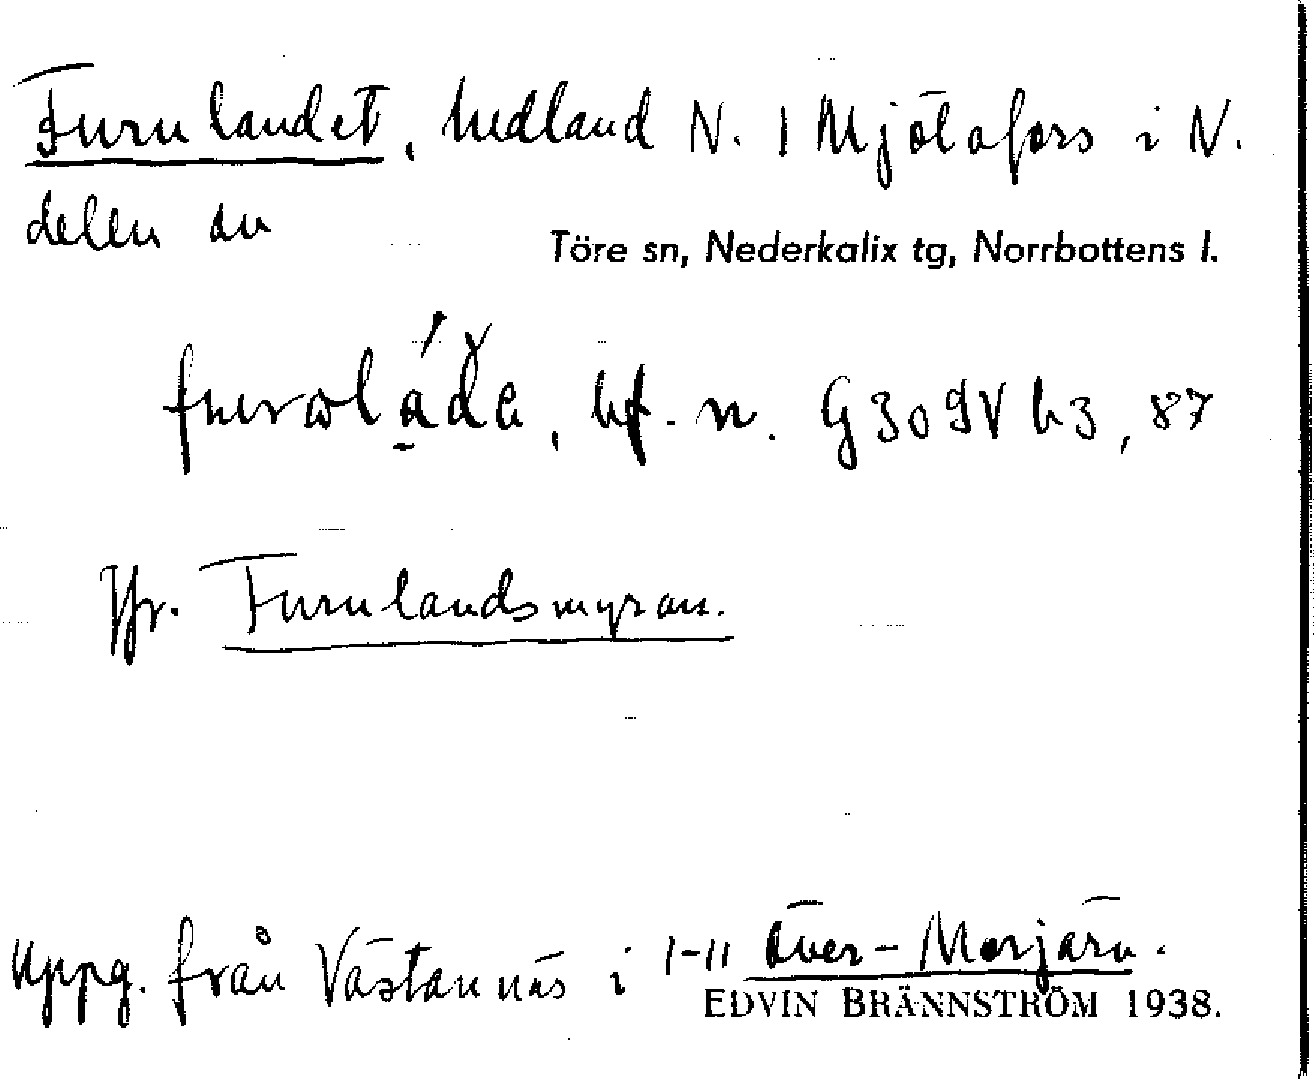 Furulandet, hedland N. 1 Mjölafors i N.
delen av
Töre sn, Nederkalix tg, Norrbottens l.
bf. n. G309V h3, 87
Jfr. Furulandsmyran.
Uppg. från Västannäs i 1-11 Över-Morjärv.
EDVIN BRÄNNSTRÖM 1938.